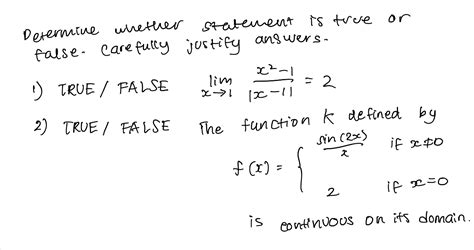 Determine whether statement is true or
false. Carefully justify answers.
1) TRUE / FALSE lim x→1 x²-1 / |x-1| = 2
2) TRUE / FALSE The function k defined by
f(x) = { sin(2x)/x if x≠0
2 if x=0
is continuous on its domain.